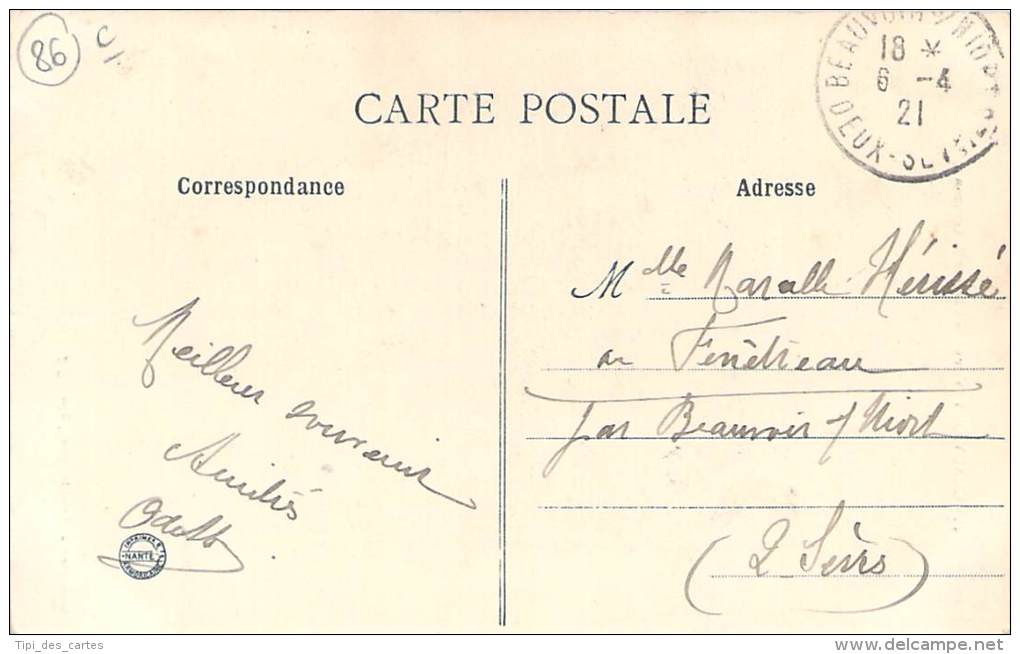 86
BEAUVOIR S/NIORT
18 *
6 -4
21
DEUX-SEVRES
CARTE POSTALE
Correspondance
Adresse
Meilleur souvenir
Amitiés
Odette
IMPRIMERIES
NANTES
ARMORICAINES
Mlle Marcelle Hérissé
au Fenêtreau
par Beauvoir s/ Niort
(2 Sèvres)
Tipi_des_cartes
www.delcampe.net